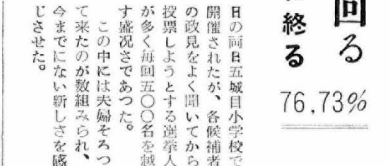 回る
終る
76.73%
日の両日五城目小学校で
開催されたが、各候補者
の政見をよく聞いてから
投票しようとする選挙人
が多く毎回五〇〇名を越
す盛況さであつた。
この中には夫婦そろつ
て来たのが数組みられ、
今までにない新しさを感
じさせた。